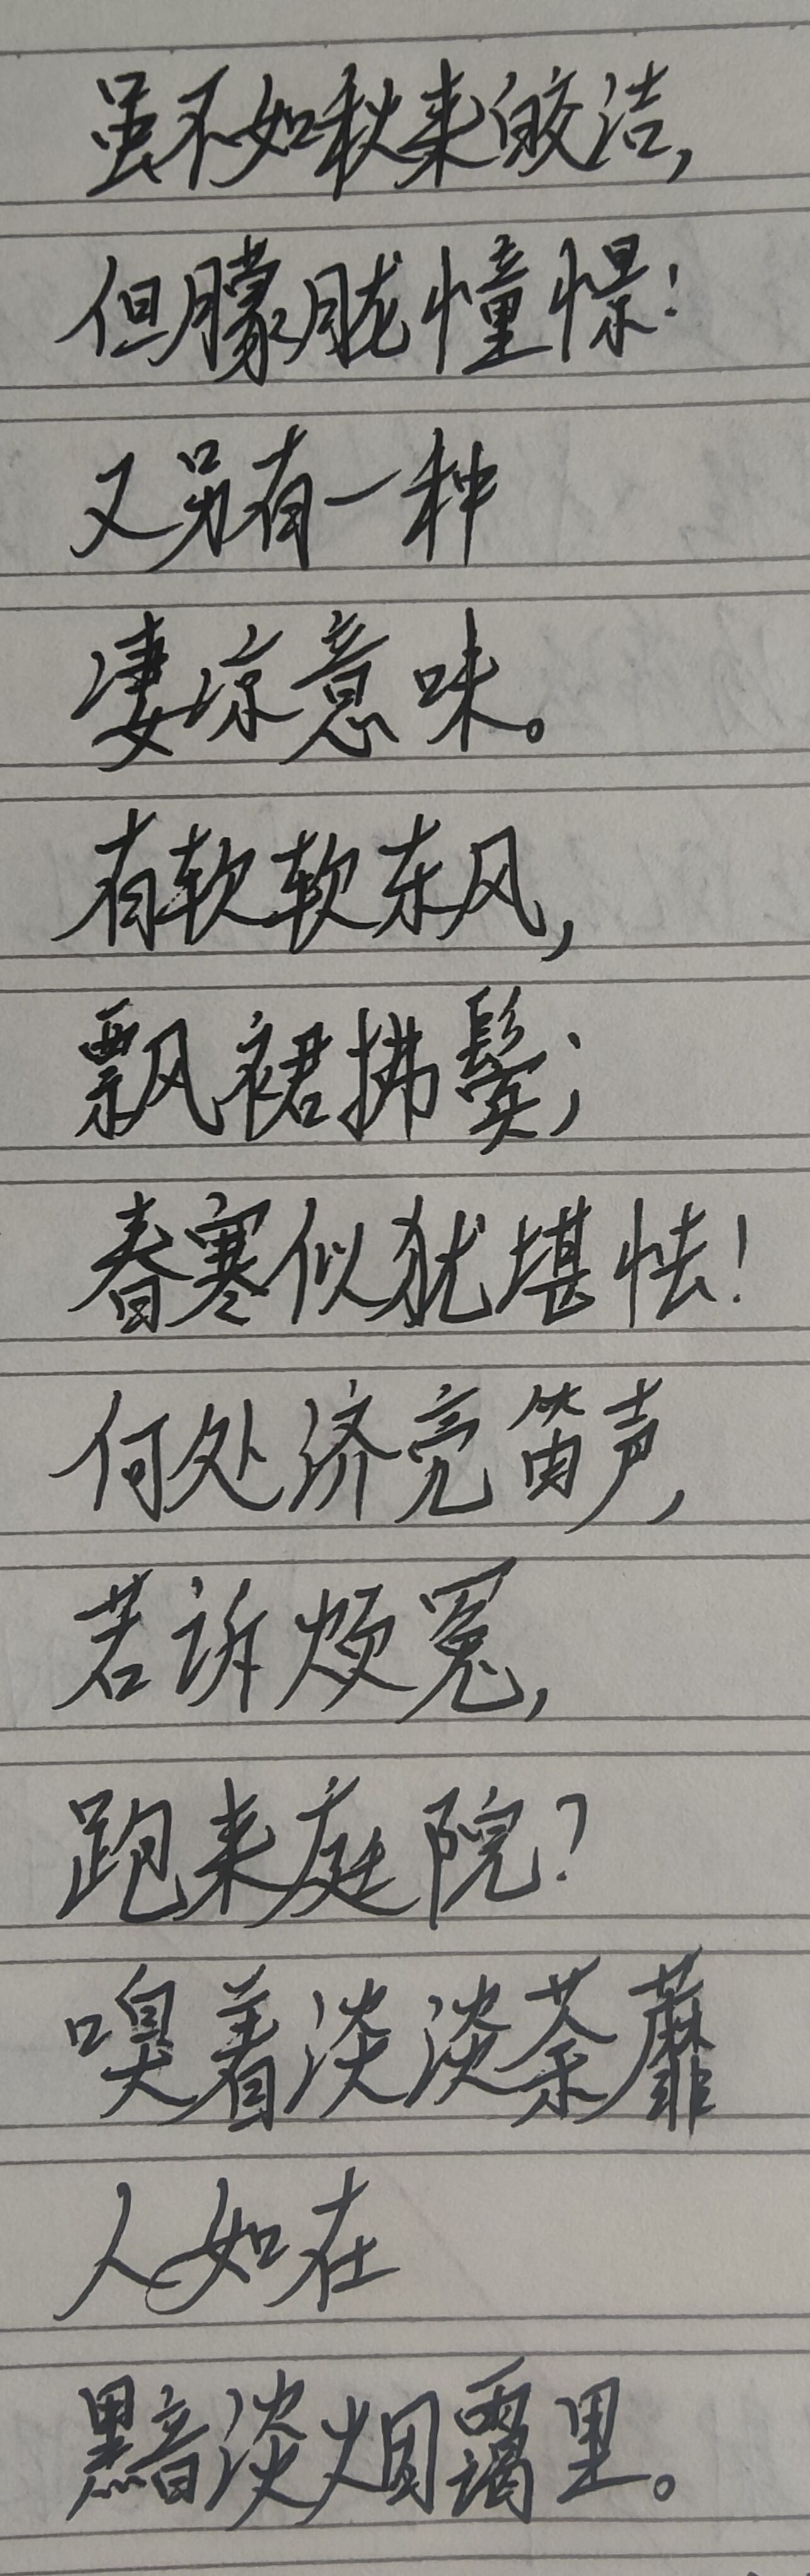 虽不如秋来皎洁,
但朦胧憧憬!
又另有一种
凄凉意味。
有软软东风,
飘裙拂鬓;
春寒似犹堪怯!
何处济亮笛声,
若诉烦冤,
跑来庭院?
嗅着淡淡荼蘼
人如在
黯淡烟霭里。